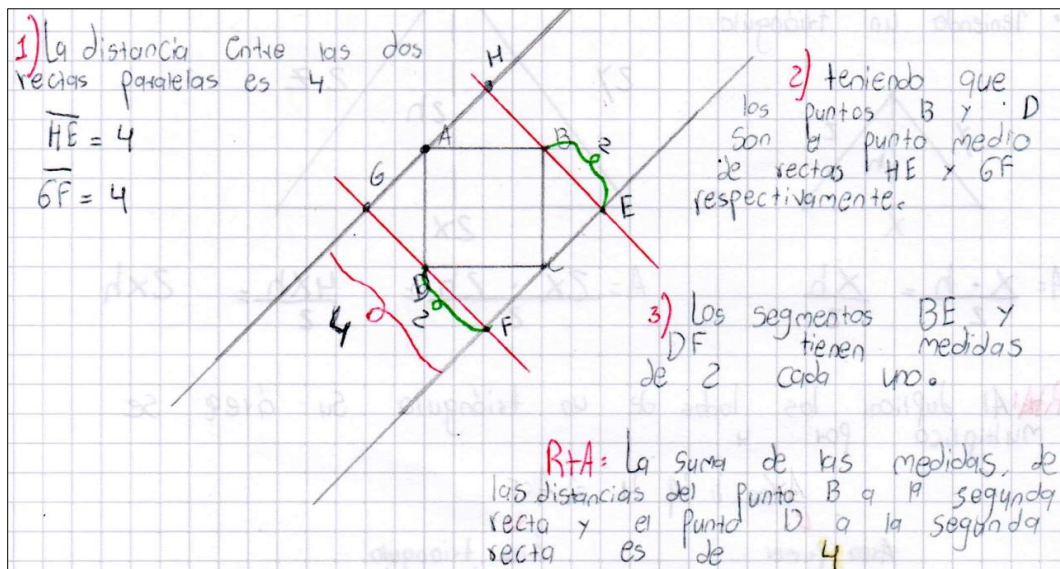 1) La distancia entre las dos
rectas paralelas es 4
HE = 4
GF = 4
H
A
B
2
G
E
D
C
2
F
4
2) teniendo que
los puntos B y D
son el punto medio
de rectas HE y GF
respectivamente.
3) Los segmentos BE y
DF tienen medidas
de 2 cada uno.
RtA= La suma de las medidas, de
las distancias del punto B a la segunda
recta y el punto D a la segunda
recta es de 4